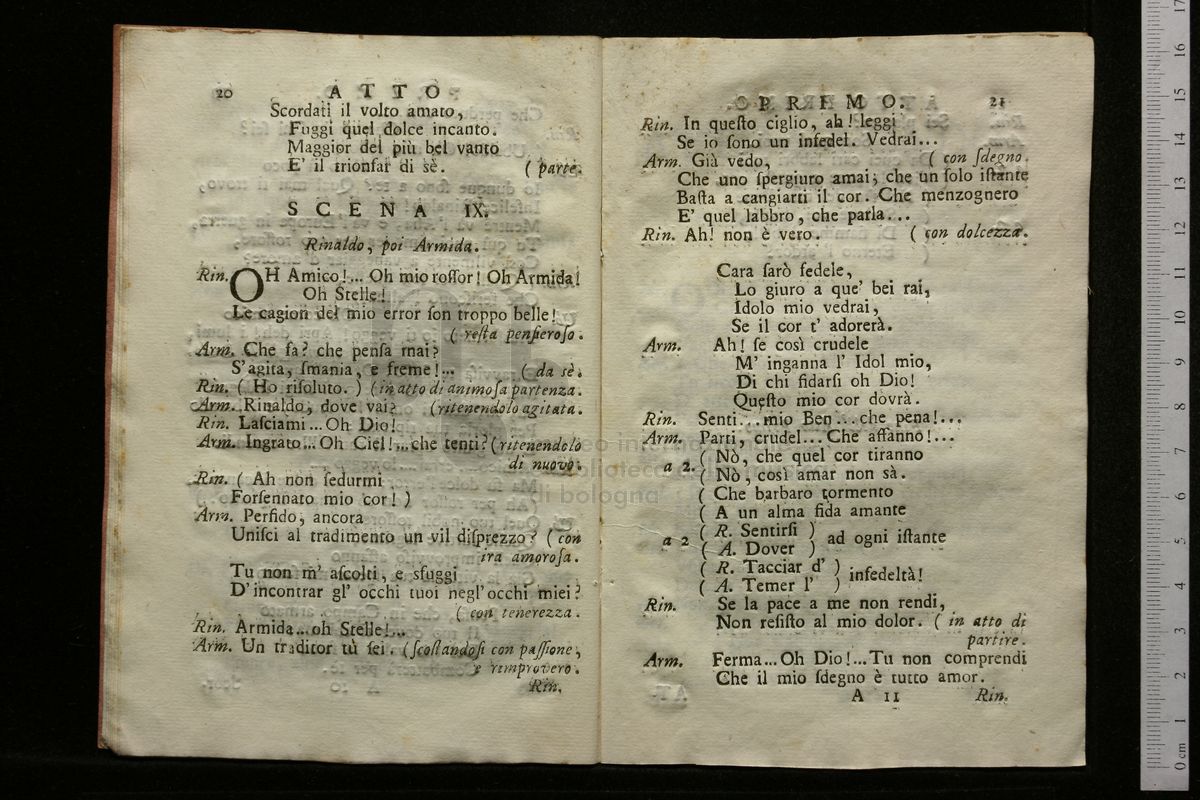 20 ATTO
Scordati il volto amato,
Fuggi quel dolce incanto.
Maggior del più bel vanto
E' il trionfar di sè. ( parte.
SCENA IX.
Rinaldo, poi Armida.
Rin. OH Amico!... Oh mio roſſor! Oh Armida!
Oh Stelle!
Le cagion del mio error ſon troppo belle!
( reſta penſieroſo.
Arm. Che fa? che penſa mai?
S'agita, ſmania, e freme!... ( da sè.
Rin. ( Ho riſoluto. ) (in atto di animoſa partenza.
Arm. Rinaldo, dove vai? (ritenendolo agitata.
Rin. Laſciami... Oh Dio!
Arm. Ingrato... Oh Ciel!...che tenti? (ritenendolo
di nuovo.
Rin. ( Ah non ſedurmi
Forſennato mio cor! )
Arm. Perfido, ancora
Uniſci al tradimento un vil diſprezzo? ( con
ira amoroſa.
Tu non m' aſcolti, e sfuggi
D'incontrar gl' occhi tuoi negl'occhi miei?
( con tenerezza.
Rin. Armida...oh Stelle!...
Arm. Un traditor tù ſei. (ſcoſtandoſi con paſſione,
e rimprovero.
Rin.
PRIMO. 21
Rin. In queſto ciglio, ah! leggi
Se io ſono un infedel. Vedrai...
Arm. Già vedo, ( con ſdegno.
Che uno ſpergiuro amai; che un ſolo iſtante
Baſta a cangiarti il cor. Che menzognero
E' quel labbro, che parla...
Rin. Ah! non è vero. ( con dolcezza.
Cara ſarò fedele,
Lo giuro a que' bei rai,
Idolo mio vedrai,
Se il cor t' adorerà.
Arm. Ah! ſe così crudele
M' inganna l' Idol mio,
Di chi fidarſi oh Dio!
Queſto mio cor dovrà.
Rin. Senti...mio Ben...che pena!...
Arm. Parti, crudel... Che affanno!...
a 2. ( Nò, che quel cor tiranno
( Nò, così amar non sà.
( Che barbaro tormento
( A un alma fida amante
a 2 ( R. Sentirſi ) ad ogni iſtante
( A. Dover )
( R. Tacciar d' ) infedeltà!
( A. Temer l' )
Rin. Se la pace a me non rendi,
Non reſiſto al mio dolor. ( in atto di
partire.
Arm. Ferma... Oh Dio!...Tu non comprendi
Che il mio ſdegno è tutto amor.
A 11 Rin.